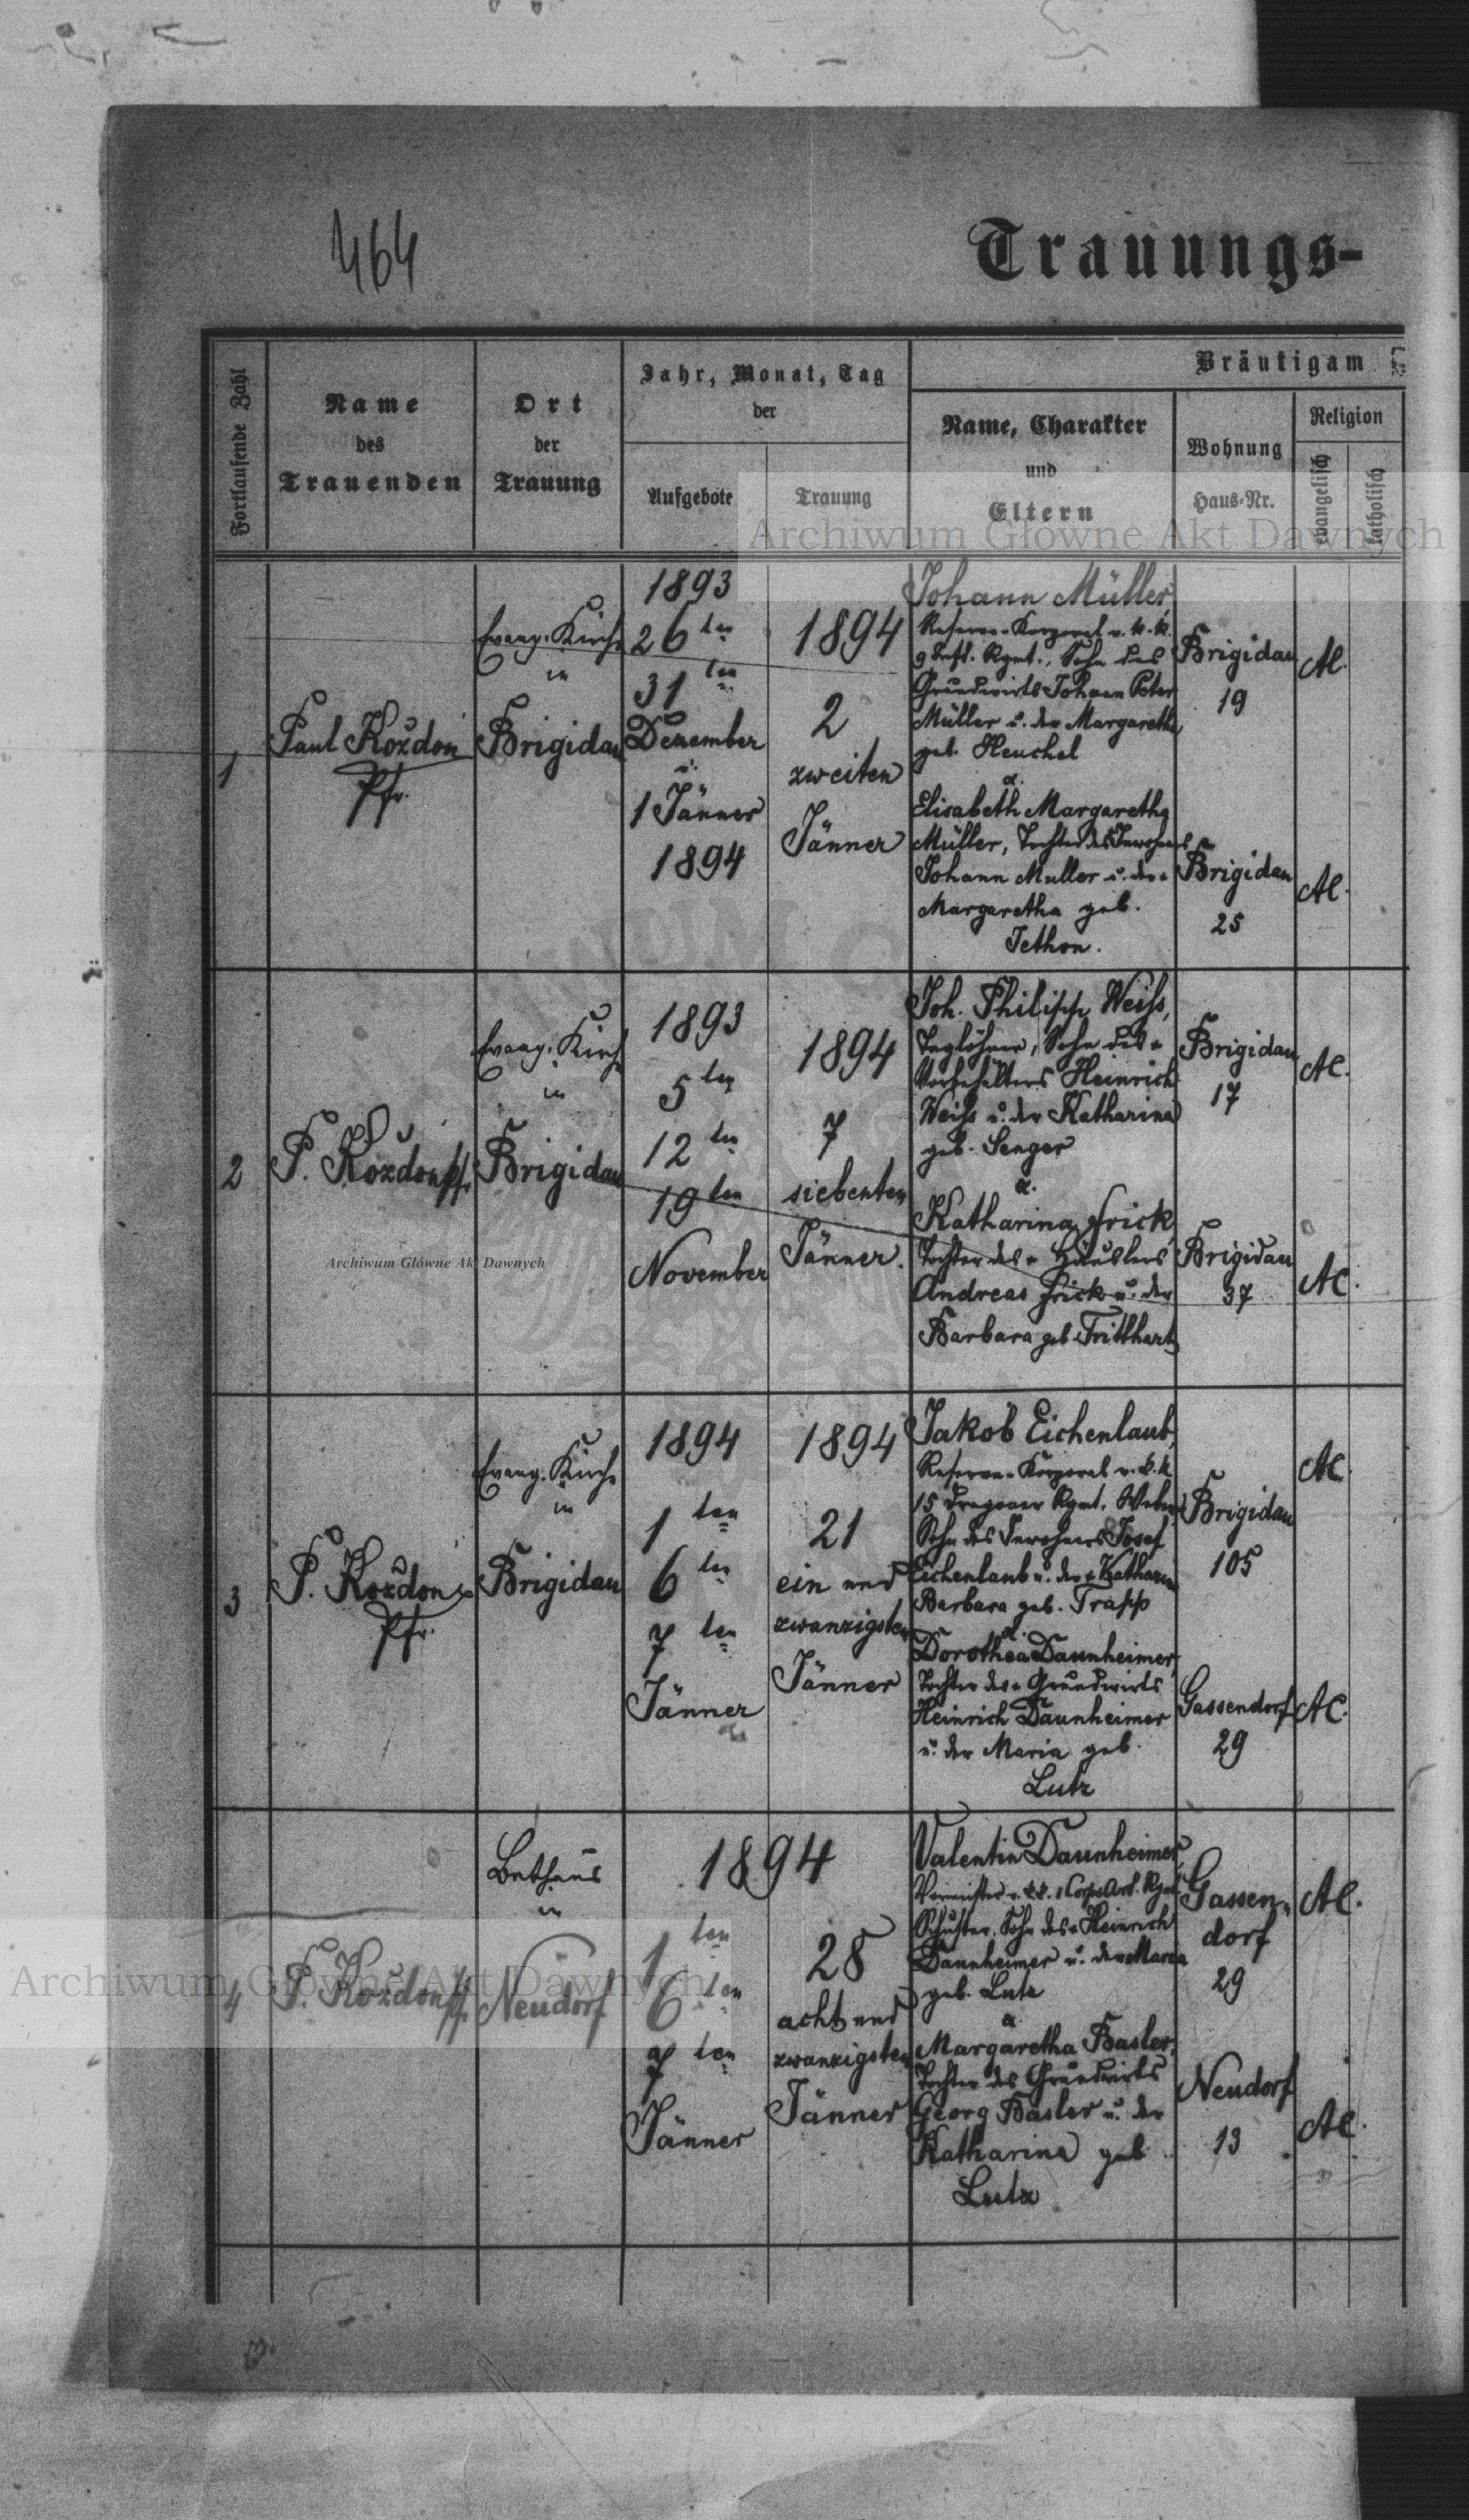 464
Trauungs-
Fortlaufende Zahl
Name
des
Trauenden
Ort
der
Trauung
Jahr, Monat, Tag
der
Aufgebote
Trauung
Bräutigam
Name, Charakter
und
Eltern
Wohnung
Haus-Nr.
Religion
evangelisch
katholisch
Archiwum Główne Akt Dawnych
1
Paul Kożdoń
Pfr.
Evang. Kirche
in
Brigidau
1893
26 ten
31 ten
Dezember
u.
1 Jänner
1894
1894
2
zweiten
Jänner
Johann Müller,
Reserve-Korporal v. k. k.
9 Inft. Rgmt., Sohn des
Grundwirts Johann Peter
Müller u. der Margaretha
geb. Heuchel
&
Elisabeth Margaretha
Müller, Tochter des Inwohners
Johann Muller u. der
Margaretha geb.
Jethon.
Brigidau
19
Brigidau
25
AC.
AC.
2
P. Kożdoń Pfr.
Evang. Kirche
in
Brigidau
1893
5 ten
12 ten
19 ten
November
1894
7
siebenten
Jänner.
Joh. Philipp Weiss,
Taglöhner, Sohn des
Vorbehälters Heinrich
Weiss u. der Katharina
geb. Senger
&
Katharina Frick
Tochter des Häuslers
Andreas Frick u. der
Barbara geb. Tritthart
Brigidau
17
Brigidau
37
AC.
AC.
Archiwum Główne Akt Dawnych
3
P. Kożdoń
Pfr.
Evang. Kirche
in
Brigidau
1894
1 ten
6 ten
7 ten
Jänner
1894
21
ein und
zwanzigsten
Jänner
Jakob Eichenlaub,
Reserve-Korporal v. k. k.
15 Dragoner Rgmt. Weber
Sohn des Inwohners Josef
Eichenlaub u. der Katharina
Barbara geb. Trapp
&
Dorothea Daunheimer,
Tochter des Grundwirts
Heinrich Daunheimer
u. der Maria geb.
Lutz
Brigidau
105
Gassendorf
29
AC.
AC.
4
P. Kożdoń Pfr.
Bethaus
in
Neudorf
1894
1 ten
6 ten
7 ten
Jänner
28
acht und
zwanzigsten
Jänner
Valentin Daunheimer,
Corps Art. Rgmt.
Schuster, Sohn des Heinrich
Daunheimer u. der Maria
geb. Lutz
&
Margaretha Basler,
Tochter des Grundwirts
Georg Basler u. der
Katharina geb.
Lutz
Gassen-
dorf
29
Neudorf
13
AC.
AC.
Archiwum Główne Akt Dawnych